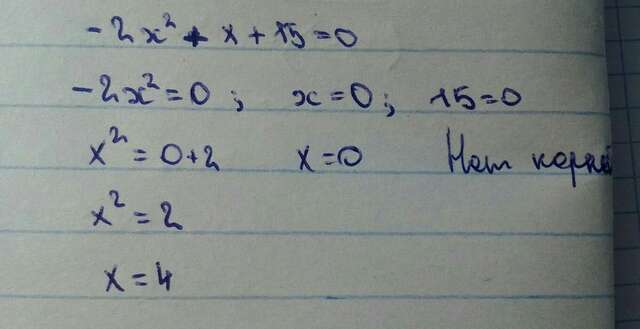 -2x² + x + 15 = 0
-2x² = 0 ; x = 0 ; 15 = 0
x² = 0 + 2 x = 0 Нет
x² = 2
x = 4